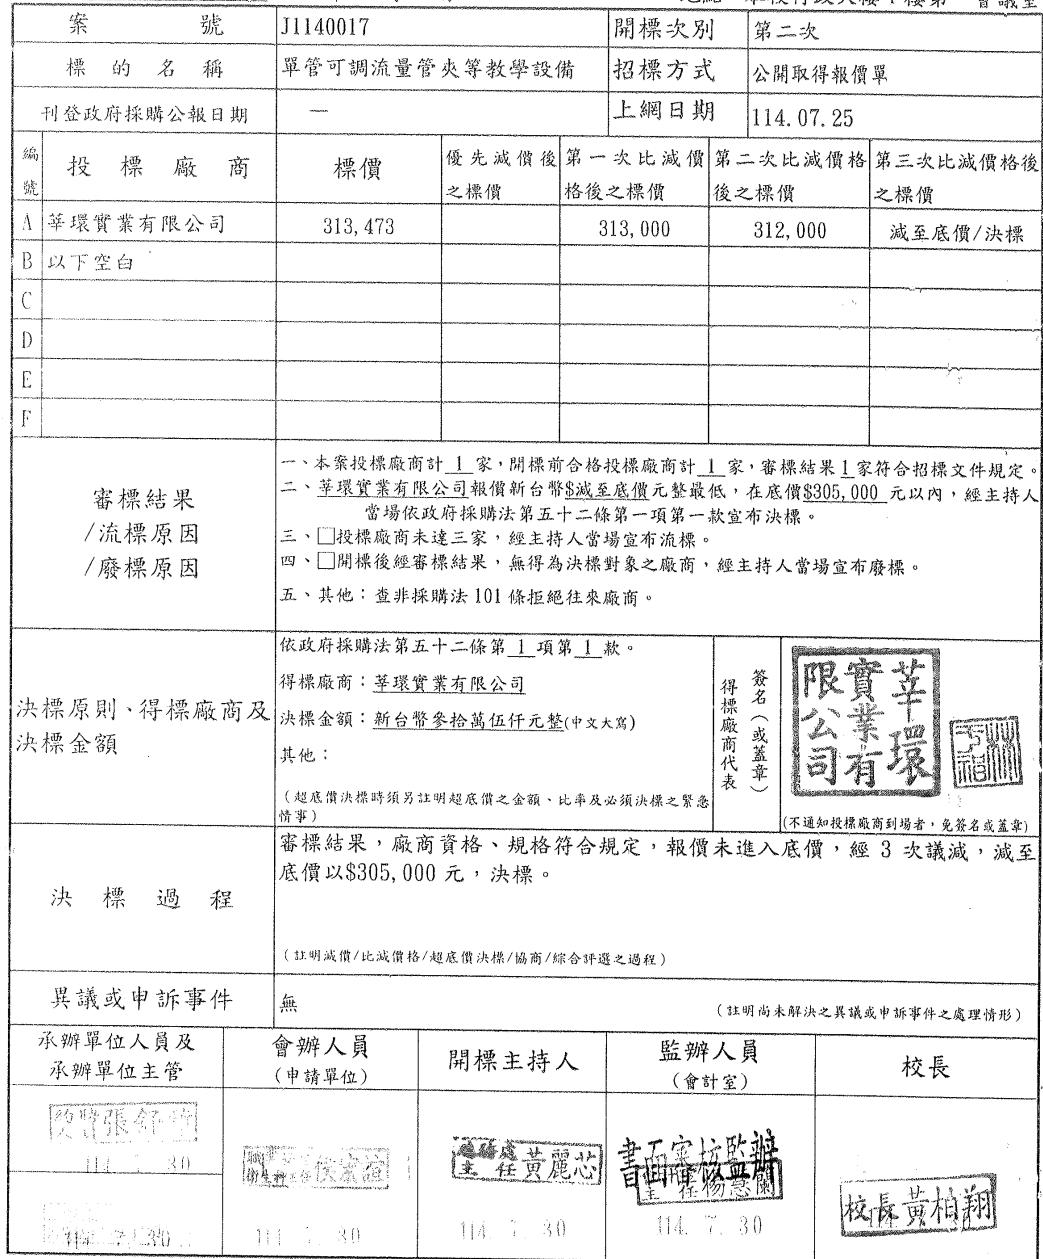 案號 J1140017 開標次別 第二次
標的名稱 單管可調流量管夾等教學設備 招標方式 公開取得報價單
刊登政府採購公報日期 — 上網日期 114.07.25
編號 投標廠商 標價 優先減價後之標價 第一次比減價格後之標價 第二次比減價格後之標價 第三次比減價格後之標價
A 莘環實業有限公司 313,473 313,000 312,000 減至底價/決標
B 以下空白
C
D
E
F
審標結果
/流標原因
/廢標原因
一、本案投標廠商計 1 家,開標前合格投標廠商計 1 家,審標結果 1 家符合招標文件規定。
二、莘環實業有限公司報價新台幣$減至底價元整最低,在底價$305,000 元以內,經主持人
當場依政府採購法第五十二條第一項第一款宣布決標。
三、□投標廠商未達三家,經主持人當場宣布流標。
四、□開標後經審標結果,無得為決標對象之廠商,經主持人當場宣布廢標。
五、其他:查非採購法 101 條拒絕往來廠商。
決標原則、得標廠商及
決標金額
依政府採購法第五十二條第 1 項第 1 款。
得標廠商:莘環實業有限公司
決標金額:新台幣參拾萬伍仟元整(中文大寫)
其他:
(超底價決標時須另註明超底價之金額、比率及必須決標之緊急
情事)
得標廠商代表
簽名(或蓋章)
莘環
實業有
限公司
(不通知投標廠商到場者,免簽名或蓋章)
決標過程
審標結果,廠商資格、規格符合規定,報價未進入底價,經 3 次議減,減至
底價以$305,000 元,決標。
(註明減價/比減價格/超底價決標/協商/綜合評選之過程)
異議或申訴事件 無 (註明尚未解決之異議或申訴事件之處理情形)
承辦單位人員及
承辦單位主管
會辦人員
(申請單位)
開標主持人
監辦人員
(會計室)
校長
114. 7. 30
主任 黃麗芯
書面審核監辦
校長黃柏翔
114. 7. 30
114. 7. 30
114. 7. 30
114. 7. 30